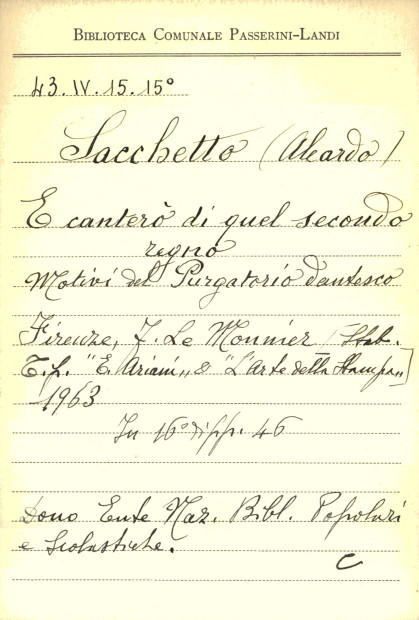 BIBLIOTECA COMUNALE PASSERINI-LANDI
43.IV.15.15°
Sacchetto (Aleardo)
E canterò di quel secondo
regno
Motivi del Purgatorio dantesco
Firenze, F. Le Monnier [Stab.
Tip. "E. Ariani" e "L'Arte della Stampa"]
1963
In 16° di pp. 46
Dono Ente Naz. Bibl. Popolari
e Scolastiche.
C